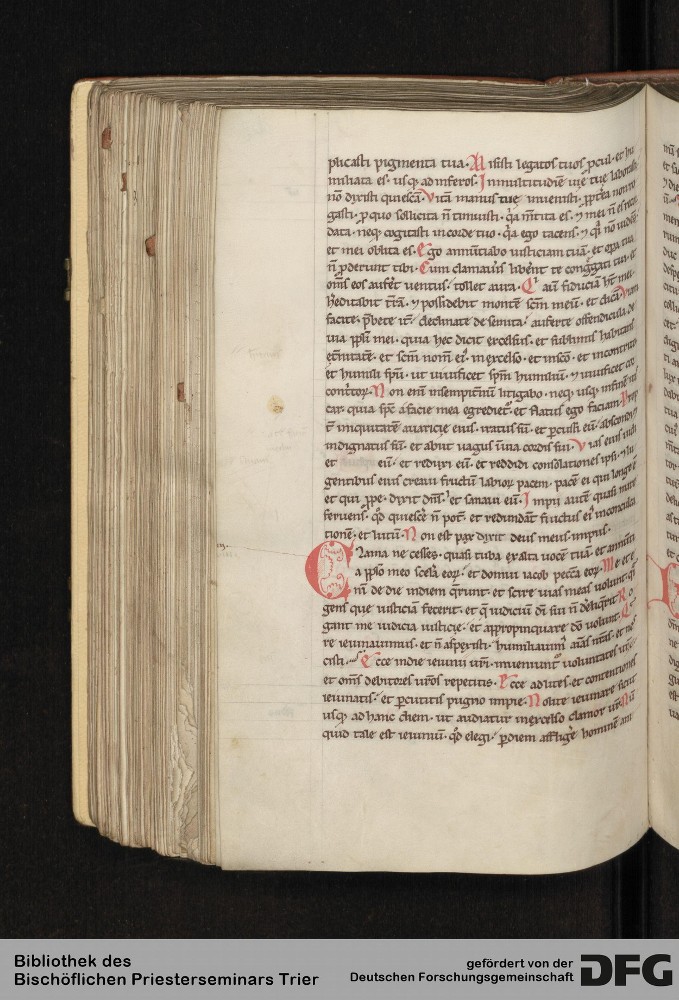 plicasti pigmenta tua. Misisti legatos tuos pcul. et hu
miliata es. usq; ad inferos. In multitudine uie tue laborasti
nō dixisti quiescā. Vitā manus tue inuenisti. ppt̄ea non ro
gasti. p quo sollicita n̄ timuisti. q̄a m̄tita es. ⁊ mei n̄ es recor
data. neq; cogitasti in corde tuo. q̄a ego tacens. ⁊ q̄i nō uidens
et mei oblita es. Ego annūtiabo iusticiam tuā. et opa tua
n̄ pderunt tibi. Cum clamau̅is libent te conggati tui. et
om̄s eos aufet uentus. tollet aura. Q̄ aū fiduciā ht̄ mei.
hēditabit t̄rā. ⁊ possidebit montē scm̄ meū. et dicā. Viam
facite. pbete it̄. declinate de semita. auferte offendicula de
uia ppli mei. quia hec dicit excelsus. et sublimis habitans
et̄nitatē. et scm̄ nom̄ ei. in excelso. et in sc̄o. et in contrito
et humili spū. ut uiuificet spm̄ humiliū. ⁊ uiuificet cor
contritor. Non enī in sempit̄nū litigabo. neq; usq; in finē iras
car. quia spc̄ a facie mea egrediet. et flatus ego faciam. Prop
t̄ iniquitatē auaricie eius. iratus sū. et pcussi eū. abscondi
indignatus sū. et abiit uagus in uia cordis sui. Vias eius uidi
et eū. et reduxi eū. et reddidi consolationes ipsi. ⁊ lu
gentibus eius creaui fructū labior pacem. pacē ei qui longe ē
et qui ppe. dixit dn̄s. et sanaui eū. Impii autē quasi mare
feruens. qd̄ quiesc̄e n̄ pot̄. et redundāt fluctus ei in conculca
tionē. et lutū. Non est pax dixit deus meus impiis.
Clama ne cesses. quasi tuba exalta uocē tuā. et annūti
a pplo meo scela eor. et domui iacob pecc̄a eor. Me et e
nī de die in diem q̄runt. et scire uias meas uolunt. q̄si
gens que iusticiā fecerit. et q̄ iudiciū di sui n̄ deliq̄rit. Ro
gant me iudicia iusticie. et appropinquare dō uolunt. Q̄
re ieiunauimus. et n̄ aspexisti. humiliauim aīas nr̄as. et nes
cisti. Ecce in die ieiunii ur̄i. inuenit uoluntates ur̄e.
et om̄s debitores ur̄os repetitis. Ecce ad lites. et contentiones
ieiunatis. et pcutitis pugno impie. Nolite ieiunare sicut
usq; ad hanc diem. ut audiatur in excelso clamor ur̄. Nū
quid tale est ieiuniū. qd̄ elegi. p diem affligē hominē aīa
Bibliothek des
Bischöflichen Priesterseminars Trier
gefördert von der
Deutschen Forschungsgemeinschaft
DFG